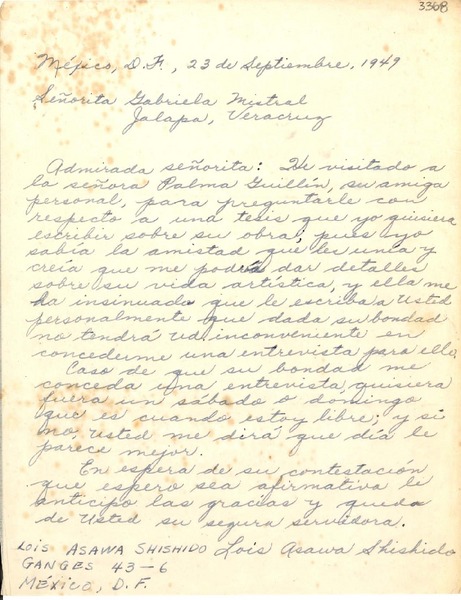 3368
México, D.F., 23 de Septiembre, 1949
Señorita Gabriela Mistral
Jalapa, Veracruz
Admirada señorita: He visitado a
la señora Palma Guillín, su amiga
personal, para preguntarle con
respecto a una tesis que yo quisiera
escribir sobre su obra, pues yo
sabía la amistad que les unía y
creía que me podría dar detalles
sobre su vida artística, y ella me
ha insinuado que le escriba a Usted
personalmente que dada su bondad
no tendrá Ud. inconveniente en
concederme una entrevista para ello.
Caso de que su bondad me
conceda una entrevista, quisiera
fuera un sábado o domingo
que es cuando estoy libre; y si
no, Usted me dirá que día le
parece mejor.
En espera de su contestación
que espero sea afirmativa le
anticipo las gracias y queda
de Usted su segura servidora.
LOIS ASAWA SHISHIDO Lois Asawa Shishido
GANGES 43-6
MÉXICO, D.F.